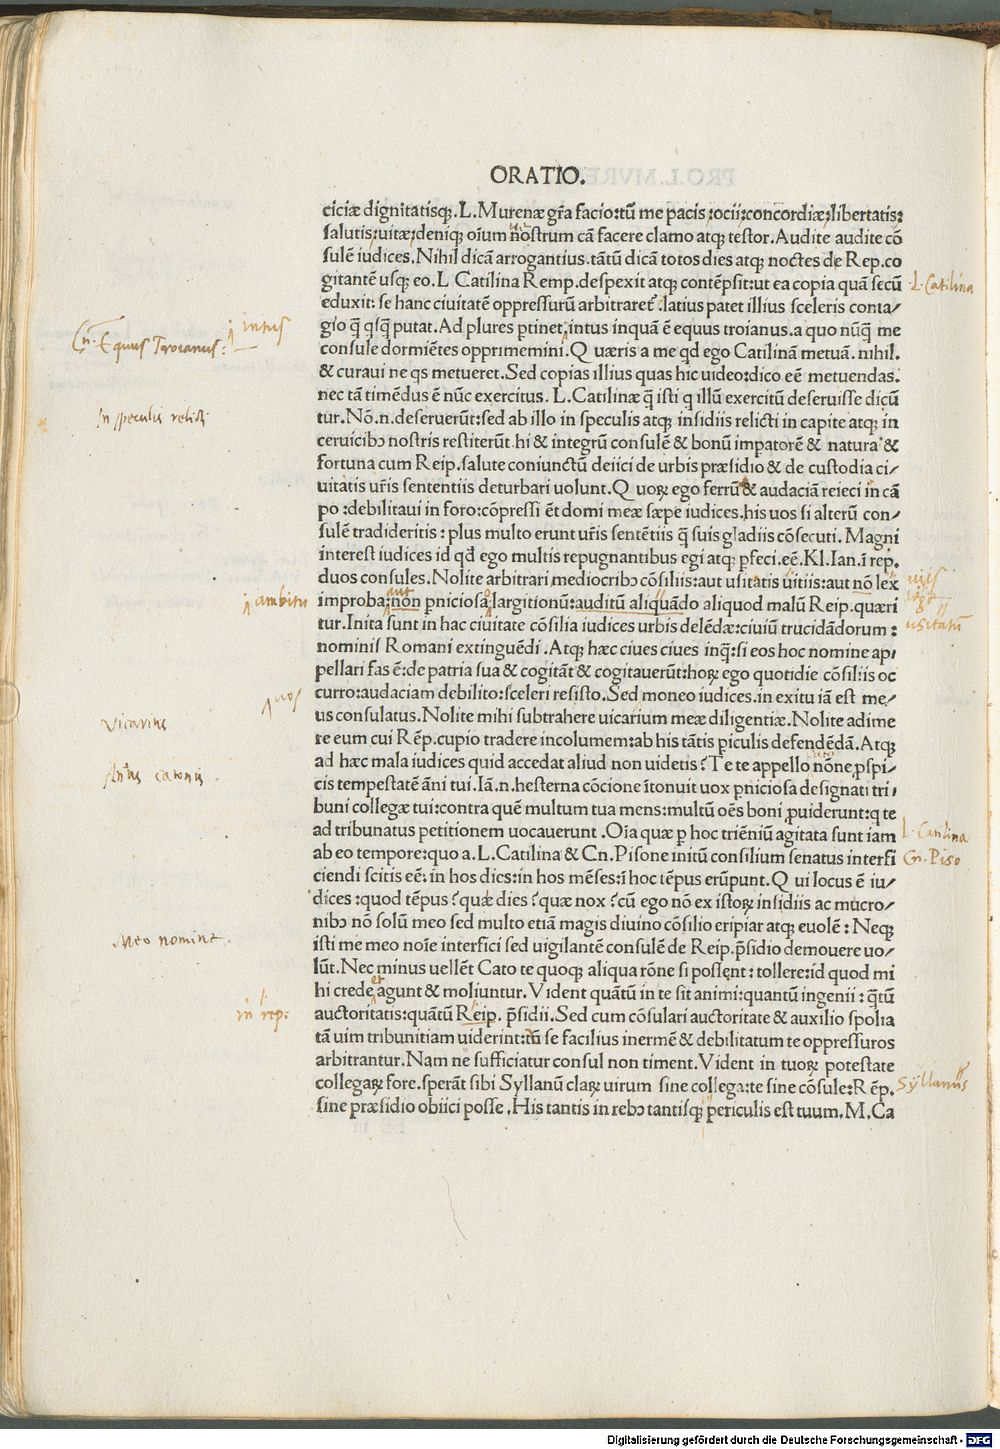 ORATIO.
ciciæ dignitatisqꝫ.L.Murenæ gr̃a facio:tū me pacis:ocii:concordiæ:libertatis:
salutis:uitæ:deniqꝫ oīum nostrum cā facere clamo atqꝫ testor.Audite audite cō
sulē iudices.Nihil dicā arrogantius.tātū dicā totos dies atqꝫ noctes de Rep.co
gitantē usqꝫ eo.L Catilina Remp.despexit atqꝫ contēpsit:ut ea copia quā secū
L. Catilina
eduxit: se hanc ciuitatē oppressurū arbitraret᷑:latius patet illius sceleris conta-
gio q̄ qsq̄ putat.Ad plures ptinet:intus inquā ē equus troianus.a quo nūq̄ me
intus
Equus Troianus:
consule dormiētes opprimemini.Q uæris a me qd ego Catilinā metuā. nihil.
& curaui ne qs metueret.Sed copias illius quas hic uideo:dico eē metuendas.
nec tā timēdus ē nūc exercitus. L.Catilinæ q̄ isti q illū exercitū deseruisse dicū
In speculis relicti
tur.Nō.n.deseruerūt:sed ab illo in speculis atqꝫ insidiis relicti in capite atqꝫ in
ceruicibꝰ nostris restiterūt.hi & integrū consulē & bonū impatorē & natura &
fortuna cum Reip.salute coniunctū deiici de urbis præsidio & de custodia ci/
uitatis ur̄is sententiis deturbari uolunt.Q uoꝝ ego ferrū & audaciā reieci in cā
po :debilitaui in foro:cōpressi ēt domi meæ sæpe iudices.his uos si alterū con/
sulē tradideritis : plus multo erunt ur̄is sentētiis q̄ suis gladiis cōsecuti. Magni
interest iudices id qd ego multis repugnantibus egi atqꝫ pfeci.eē.Kl.Ian.ī rep.
duos consules.Nolite arbitrari mediocribꝰ cōsiliis:aut usitatis uitiis:aut nō lex
aut
ambitu
improba:non pniciosa largitionū:auditū aliquādo aliquod malū Reip.quæri
usitatū
tur.Inita sunt in hac ciuitate cōsilia iudices urbis delēdæ:ciuiū trucidādorum :
nominis Romani extinguēdi .Atqꝫ hæc ciues ciues inq̄:si eos hoc nomine ap/
pellari fas ē:de patria sua & cogitāt & cogitauerūt:hoꝝ ego quotidie cōsiliis oc
curro:audaciam debilito:sceleri resisto.Sed moneo iudices.in exitu iā est me/
uos
us consulatus.Nolite mihi subtrahere uicarium meæ diligentiæ.Nolite adime
Vicarius
re eum cui Rēp.cupio tradere incolumem:ab his tātis piculis defendēdā.Atqꝫ
ad hæc mala iudices quid accedat aliud non uidetis ?Te te appello nōne pspi
cato
cis tempestatē āni tui.Iā.n.hesterna cōcione ītonuit uox pniciosa designati tri/
buni collegæ tui:contra quē multum tua mens:multū oēs boni puiderunt:q te
ad tribunatus petitionem uocauerunt .Oīa quæ p hoc triēniū agitata sunt iam
L. Catilina
ab eo tempore:quo a.L.Catilina & Cn.Pisone initū consilium senatus interfi
Cn. Piso
ciendi scitis eē: in hos dies:in hos mēses:ī hoc tēpus erūpunt.Q ui locus ē iu/
dices :quod tēpus ?quæ dies ?quæ nox ?cū ego nō ex istoꝝ insidiis ac mucro/
nibꝰ nō solū meo sed multo etiā magis diuino cōsilio eripiar atqꝫ euolē : Neqꝫ
Meo nomine.
isti me meo noīe interfici sed uigilantē consulē de Reip.p̄sidio demouere uo/
lūt.Nec minus uellēt Cato te quoqꝫ aliqua rōne si possent: tollere:id quod mi
hi crede agunt & moliuntur. Vident quātū in te sit animi:quantū ingenii : q̄tū
et
in rep:
auctoritatis:quātū Reip. p̄sidii.Sed cum cōsulari auctoritate & auxilio spolia
tā uim tribunitiam uiderint:tū se facilius inermē & debilitatum te oppressuros
arbitrantur.Nam ne sufficiatur consul non timent. Vident in tuoꝝ potestate
collegaꝝ fore.sperāt sibi Syllanū claꝝ uirum sine collega:te sine cōsule:Rēp.
Syllanus
sine præsidio obiici posse .His tantis in rebꝰ tantisqꝫ periculis est tuum.M.Ca
Digitalisierung gefördert durch die Deutsche Forschungsgemeinschaft - DFG